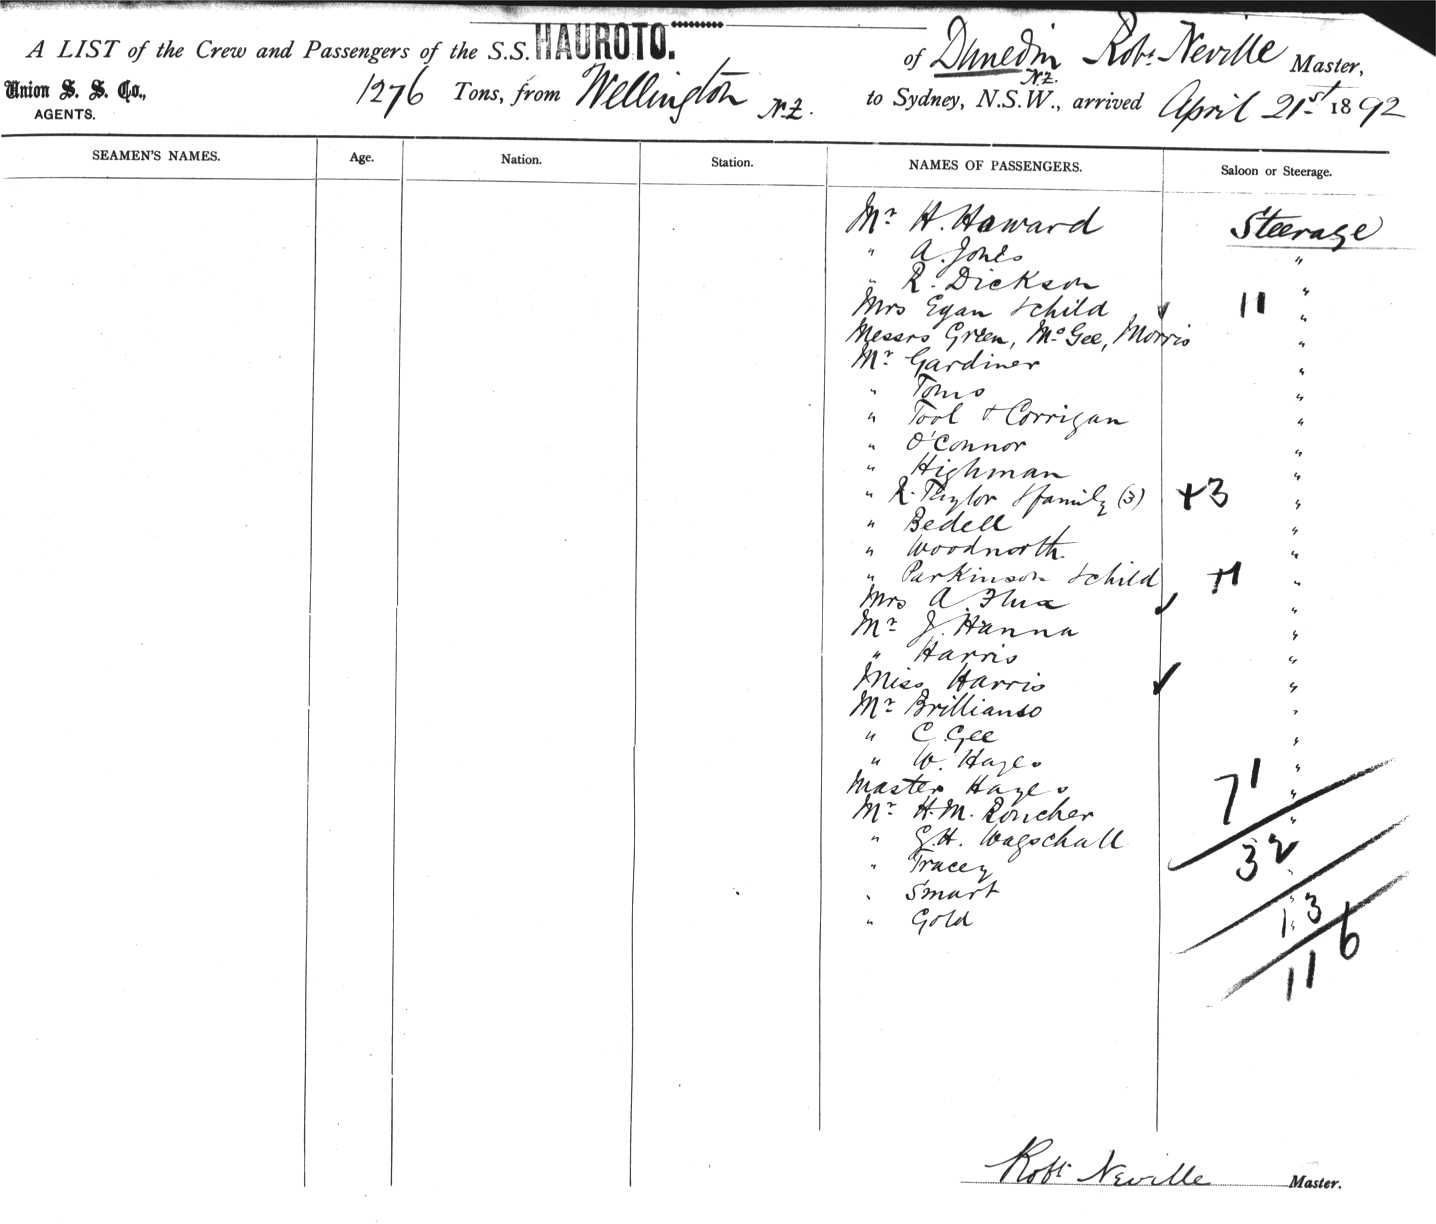 A LIST of the Crew and Passengers of the S.S. HAUROTO. of Dunedin N.Z. Robt. Neville Master,
Union S. S. Co., AGENTS. 1276 Tons, from Wellington N.Z. to Sydney, N.S.W., arrived April 21st 1892
SEAMEN'S NAMES. Age. Nation. Station. NAMES OF PASSENGERS. Saloon or Steerage.
Mr H. Howard Steerage
" A. Jones "
" R. Dickson "
Mrs Egan & child 11 "
Messrs Green, McGee, Morris "
Mr Gardiner "
" Toms "
" Tool & Corrigan "
" O'Connor "
" Highman "
" R. Taylor & family (3) +3 "
" Bedell "
" Woodnorth "
" Parkinson & child +1 "
Mrs A. Flux ✓ "
Mr J. Hanna "
" Harris "
Miss Harris ✓ "
Mr "
" C. Gee "
" W. Hayes "
Master Hayes 71 "
Mr H.M. "
" G.H. Wagschall 32
" Tracey "
" Smart 13 "
" Gold
116
Robt Neville Master.